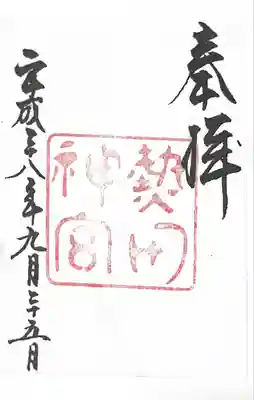 奉拝
熱田
神宮
平成二十八年九月二十五日